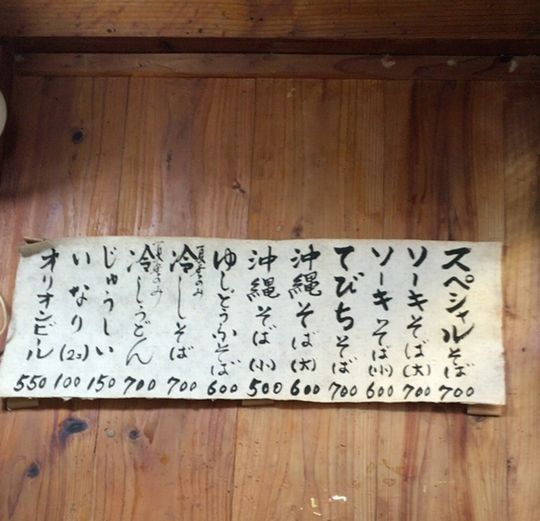 スペシャルそば 700
ソーキそば(大) 700
ソーキそば(小) 600
てびちそば 700
沖縄そば(大) 600
沖縄そば(小) 500
ゆしどうふそば 600
夏季のみ
冷しそば 700
夏季のみ
冷しうどん 700
じゅうしい 150
いなり(2コ) 100
オリオンビール 550